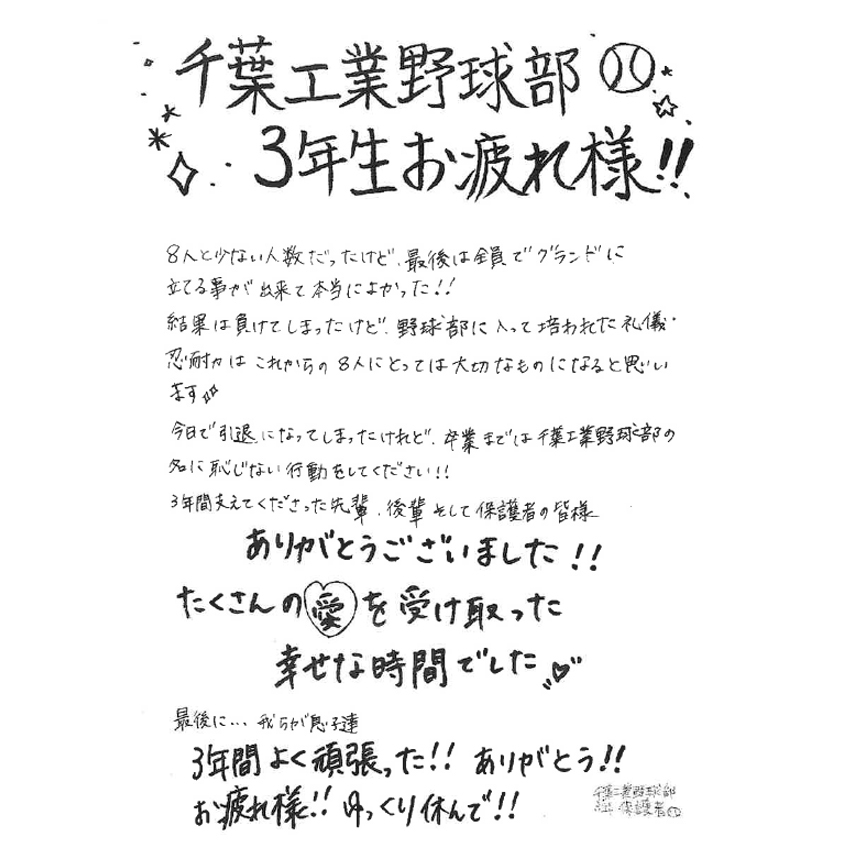 千葉工業野球部
3年生お疲れ様!!
8人と少ない人数だったけど、最後は全員でグランドに
立てる事が出来て本当によかった!!
結果は負けてしまったけど、野球部に入って培われた礼儀・
忍耐力はこれからの8人にとっては大切なものになると思い
ます
今日で引退になってしまったけれど、卒業までは千葉工業野球部の
名に恥じない行動をしてください!!
3年間支えてくださった先輩、後輩そして保護者の皆様
ありがとうございました!!
たくさんの愛を受け取った
幸せな時間でした
最後に…我らが息子達
3年間よく頑張った!!ありがとう!!
お疲れ様!!ゆっくり休んで!!
千葉工業野球部
保護者